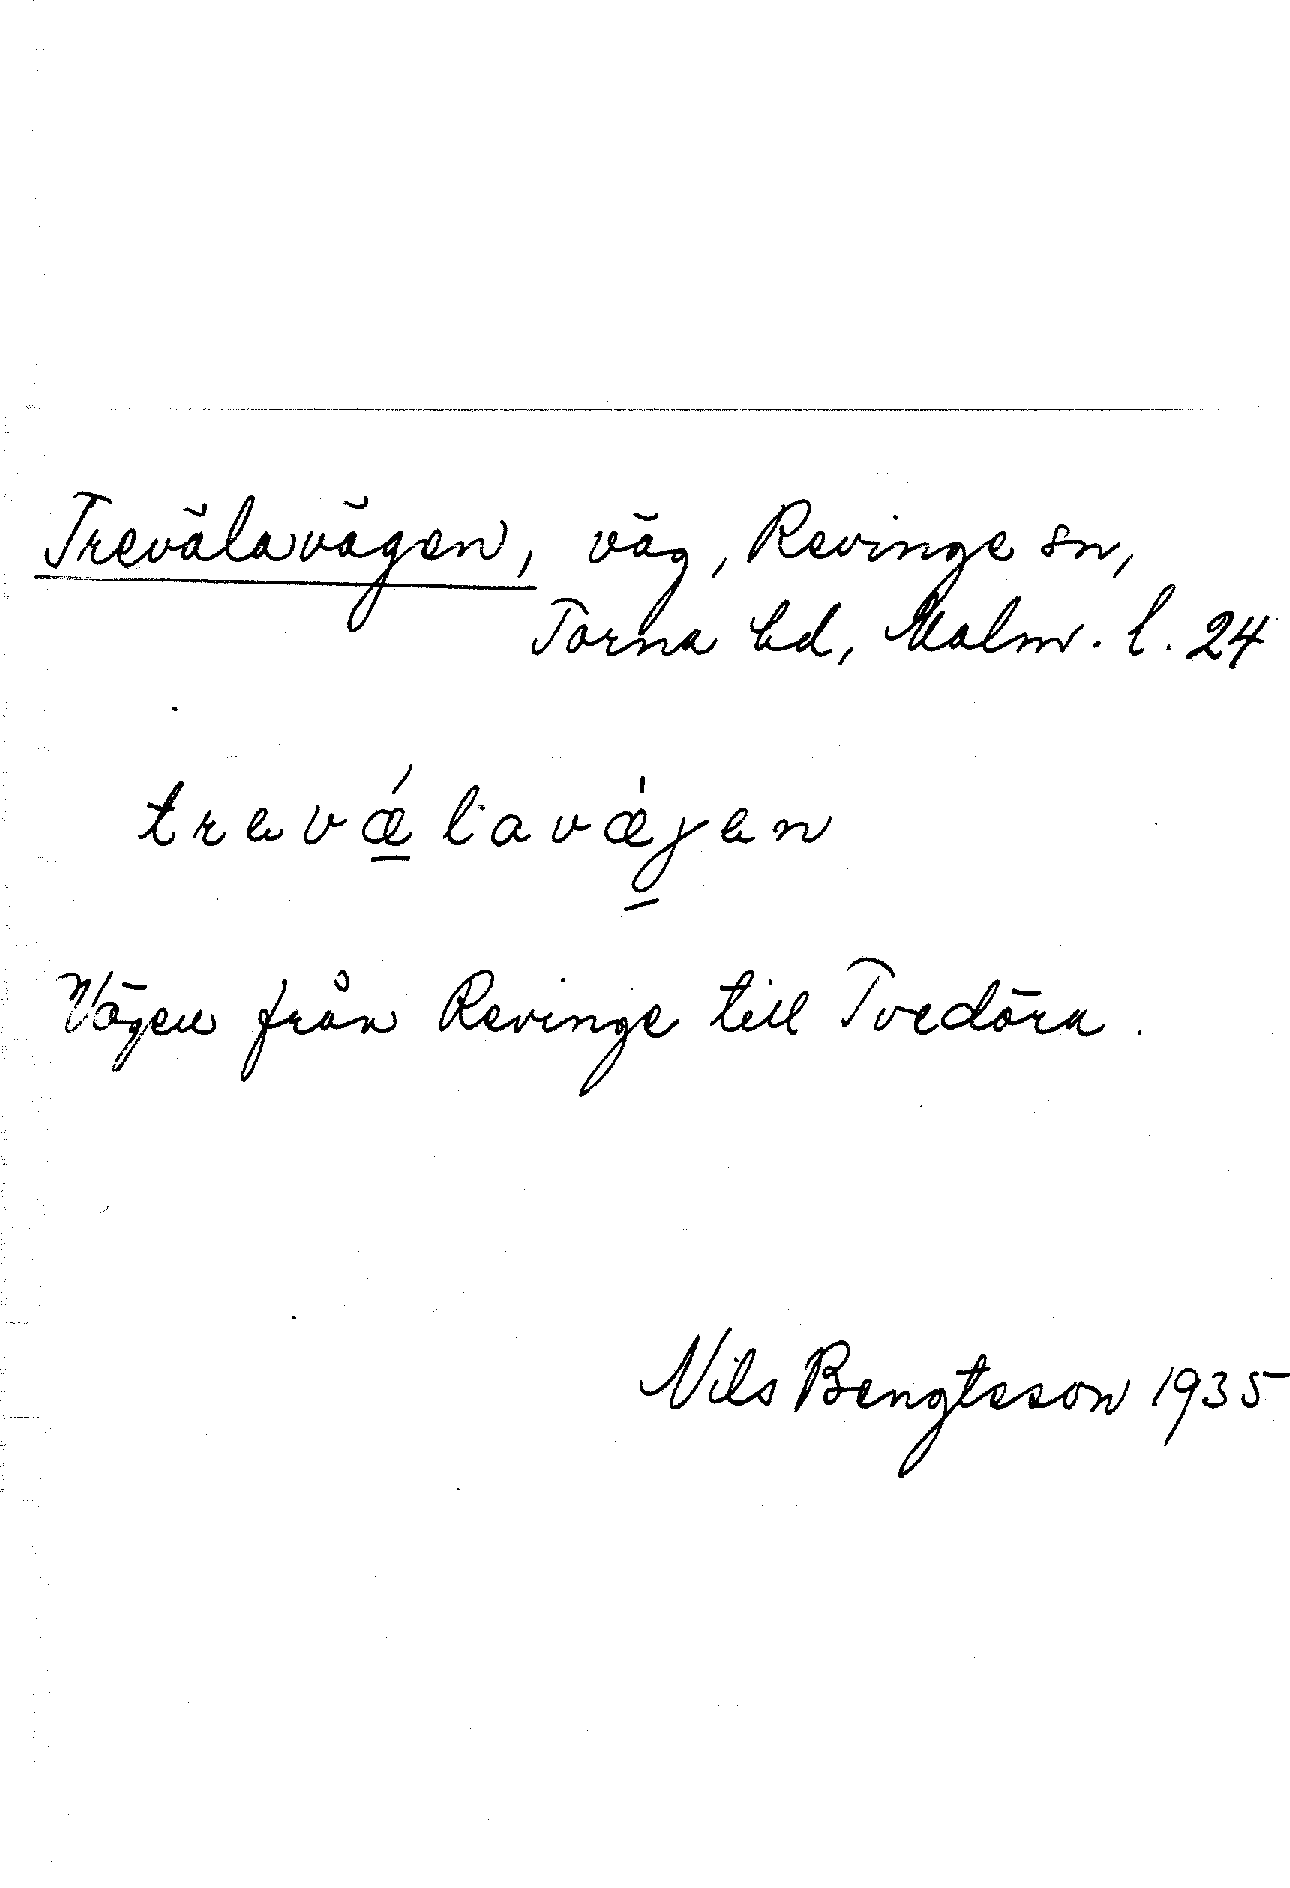 Trevälavägen, väg, Revinge sn,
Torna hd, Malm. l. 24
trevǽl·avǽjen
Vägen från Revinge till Tvedöra.
Nils Bengtsson 1935